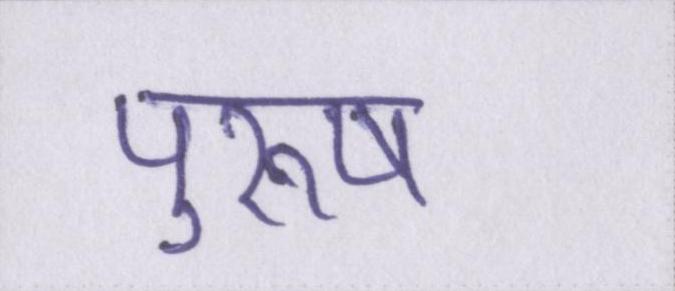 पुरूष